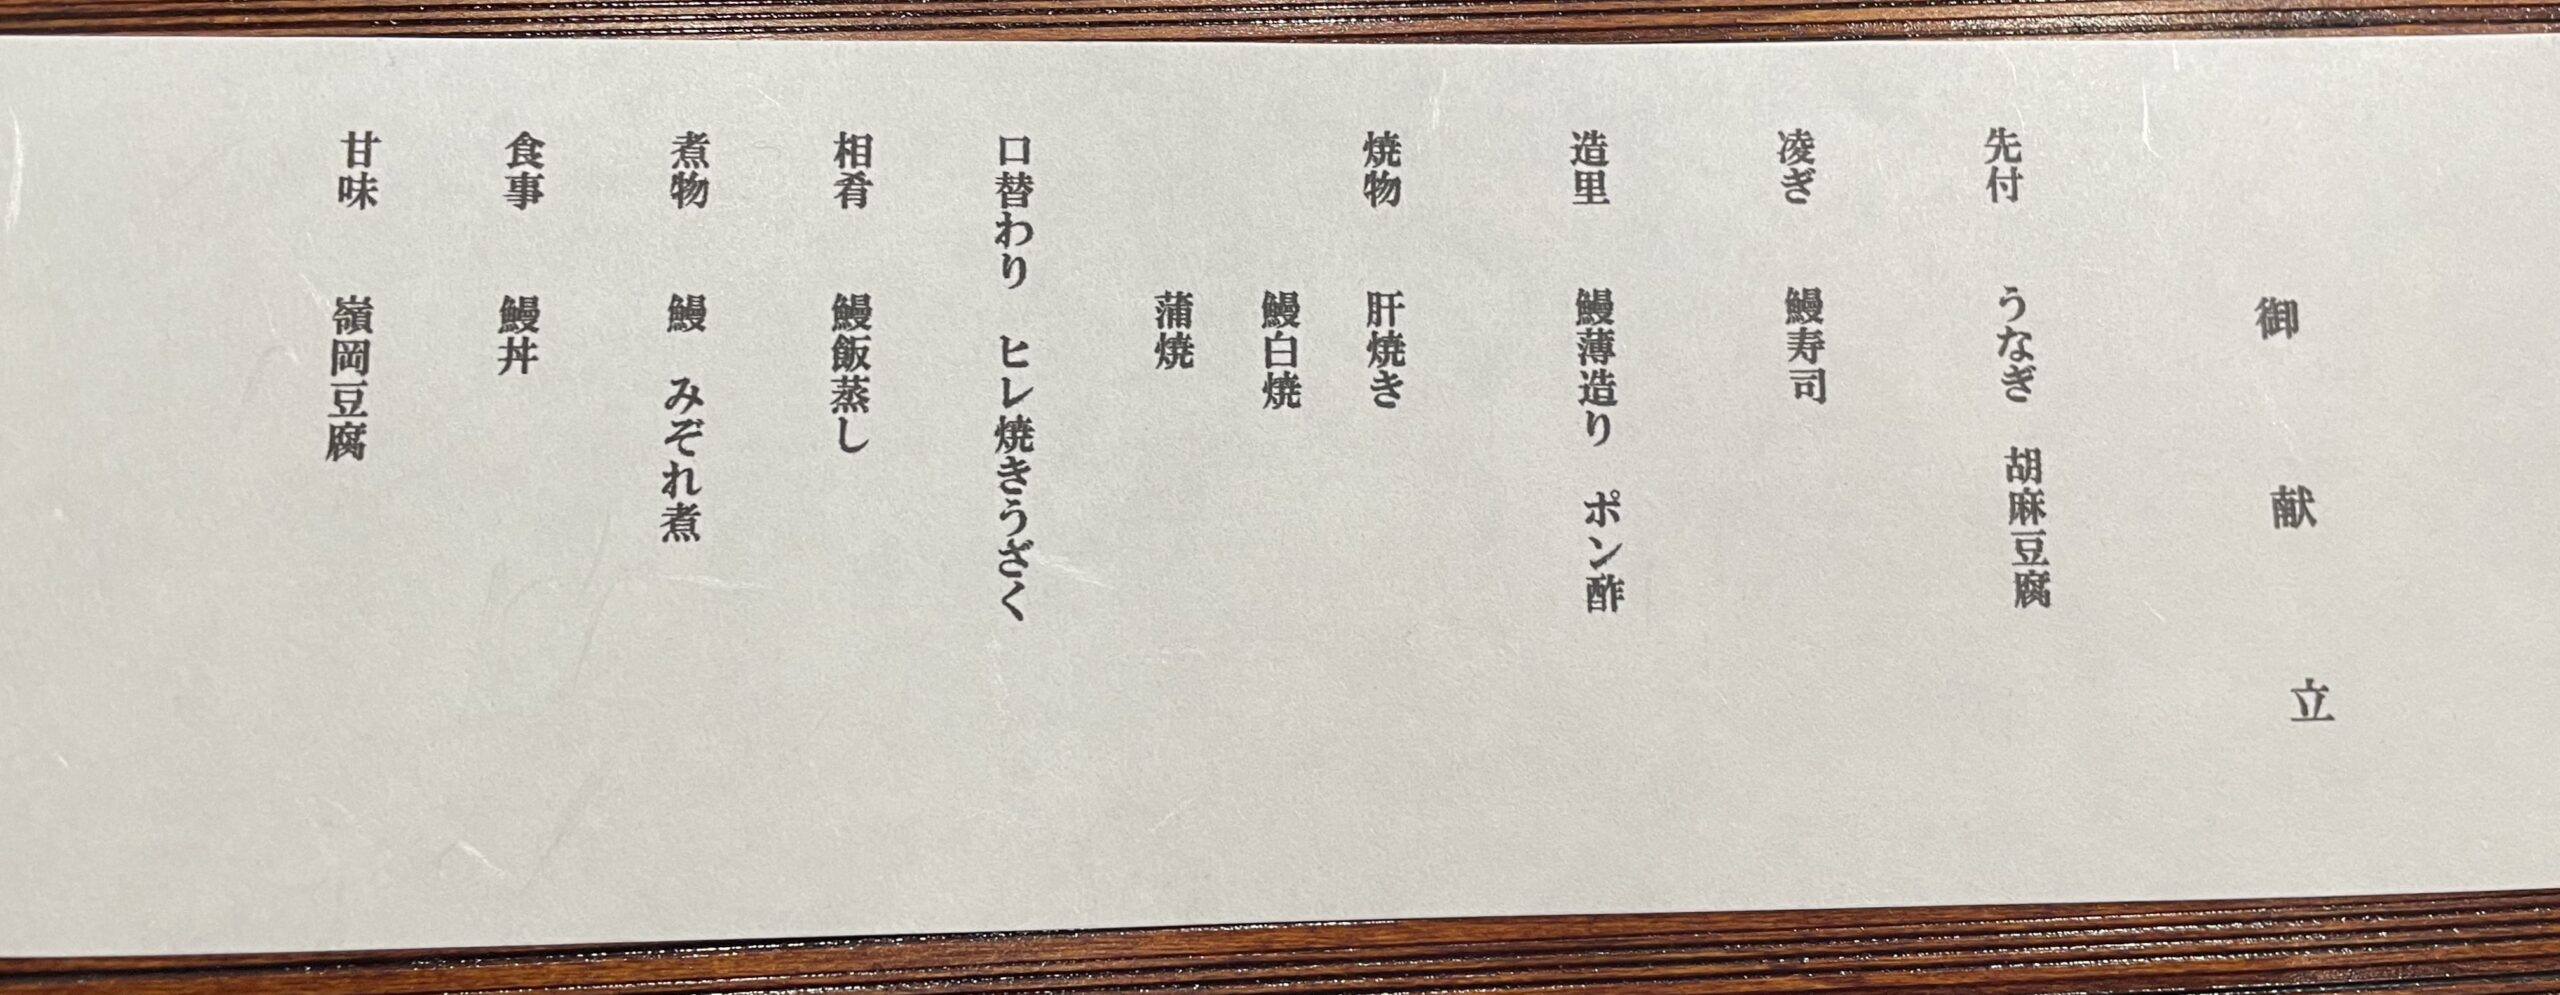 御献立
先付　うなぎ　胡麻豆腐
凌ぎ　鰻寿司
造里　鰻薄造り　ポン酢
焼物　肝焼き
鰻白焼
蒲焼
口替わり　ヒレ焼きうざく
相肴　鰻飯蒸し
煮物　鰻　みぞれ煮
食事　鰻丼
甘味　嶺岡豆腐